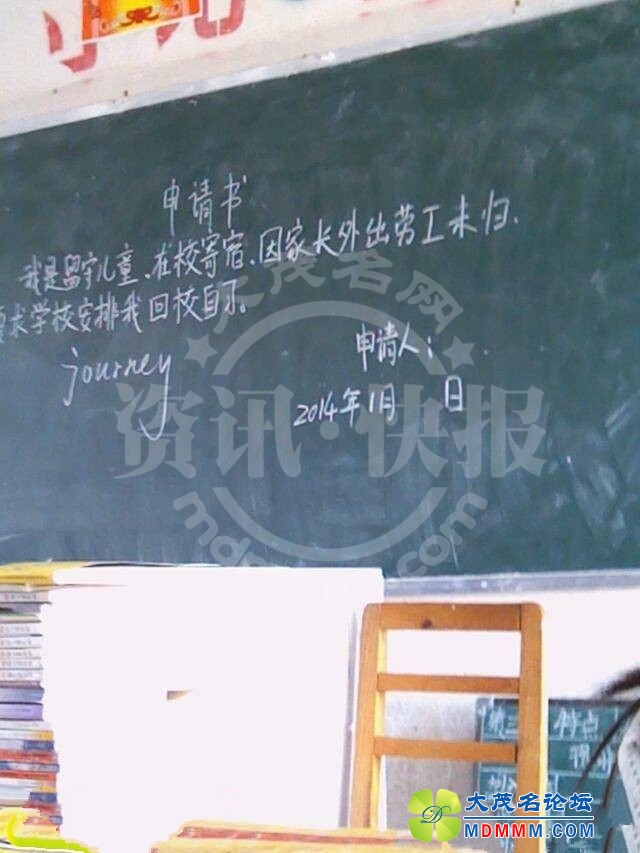 申请书
我是留守儿童、在校寄宿、因家长外出劳工未归.
要求学校安排我回校自习。
journey
申请人：
2014年1月 日
大茂名网
资讯·快报
第三 特点
大茂名论坛
MDMMM.COM